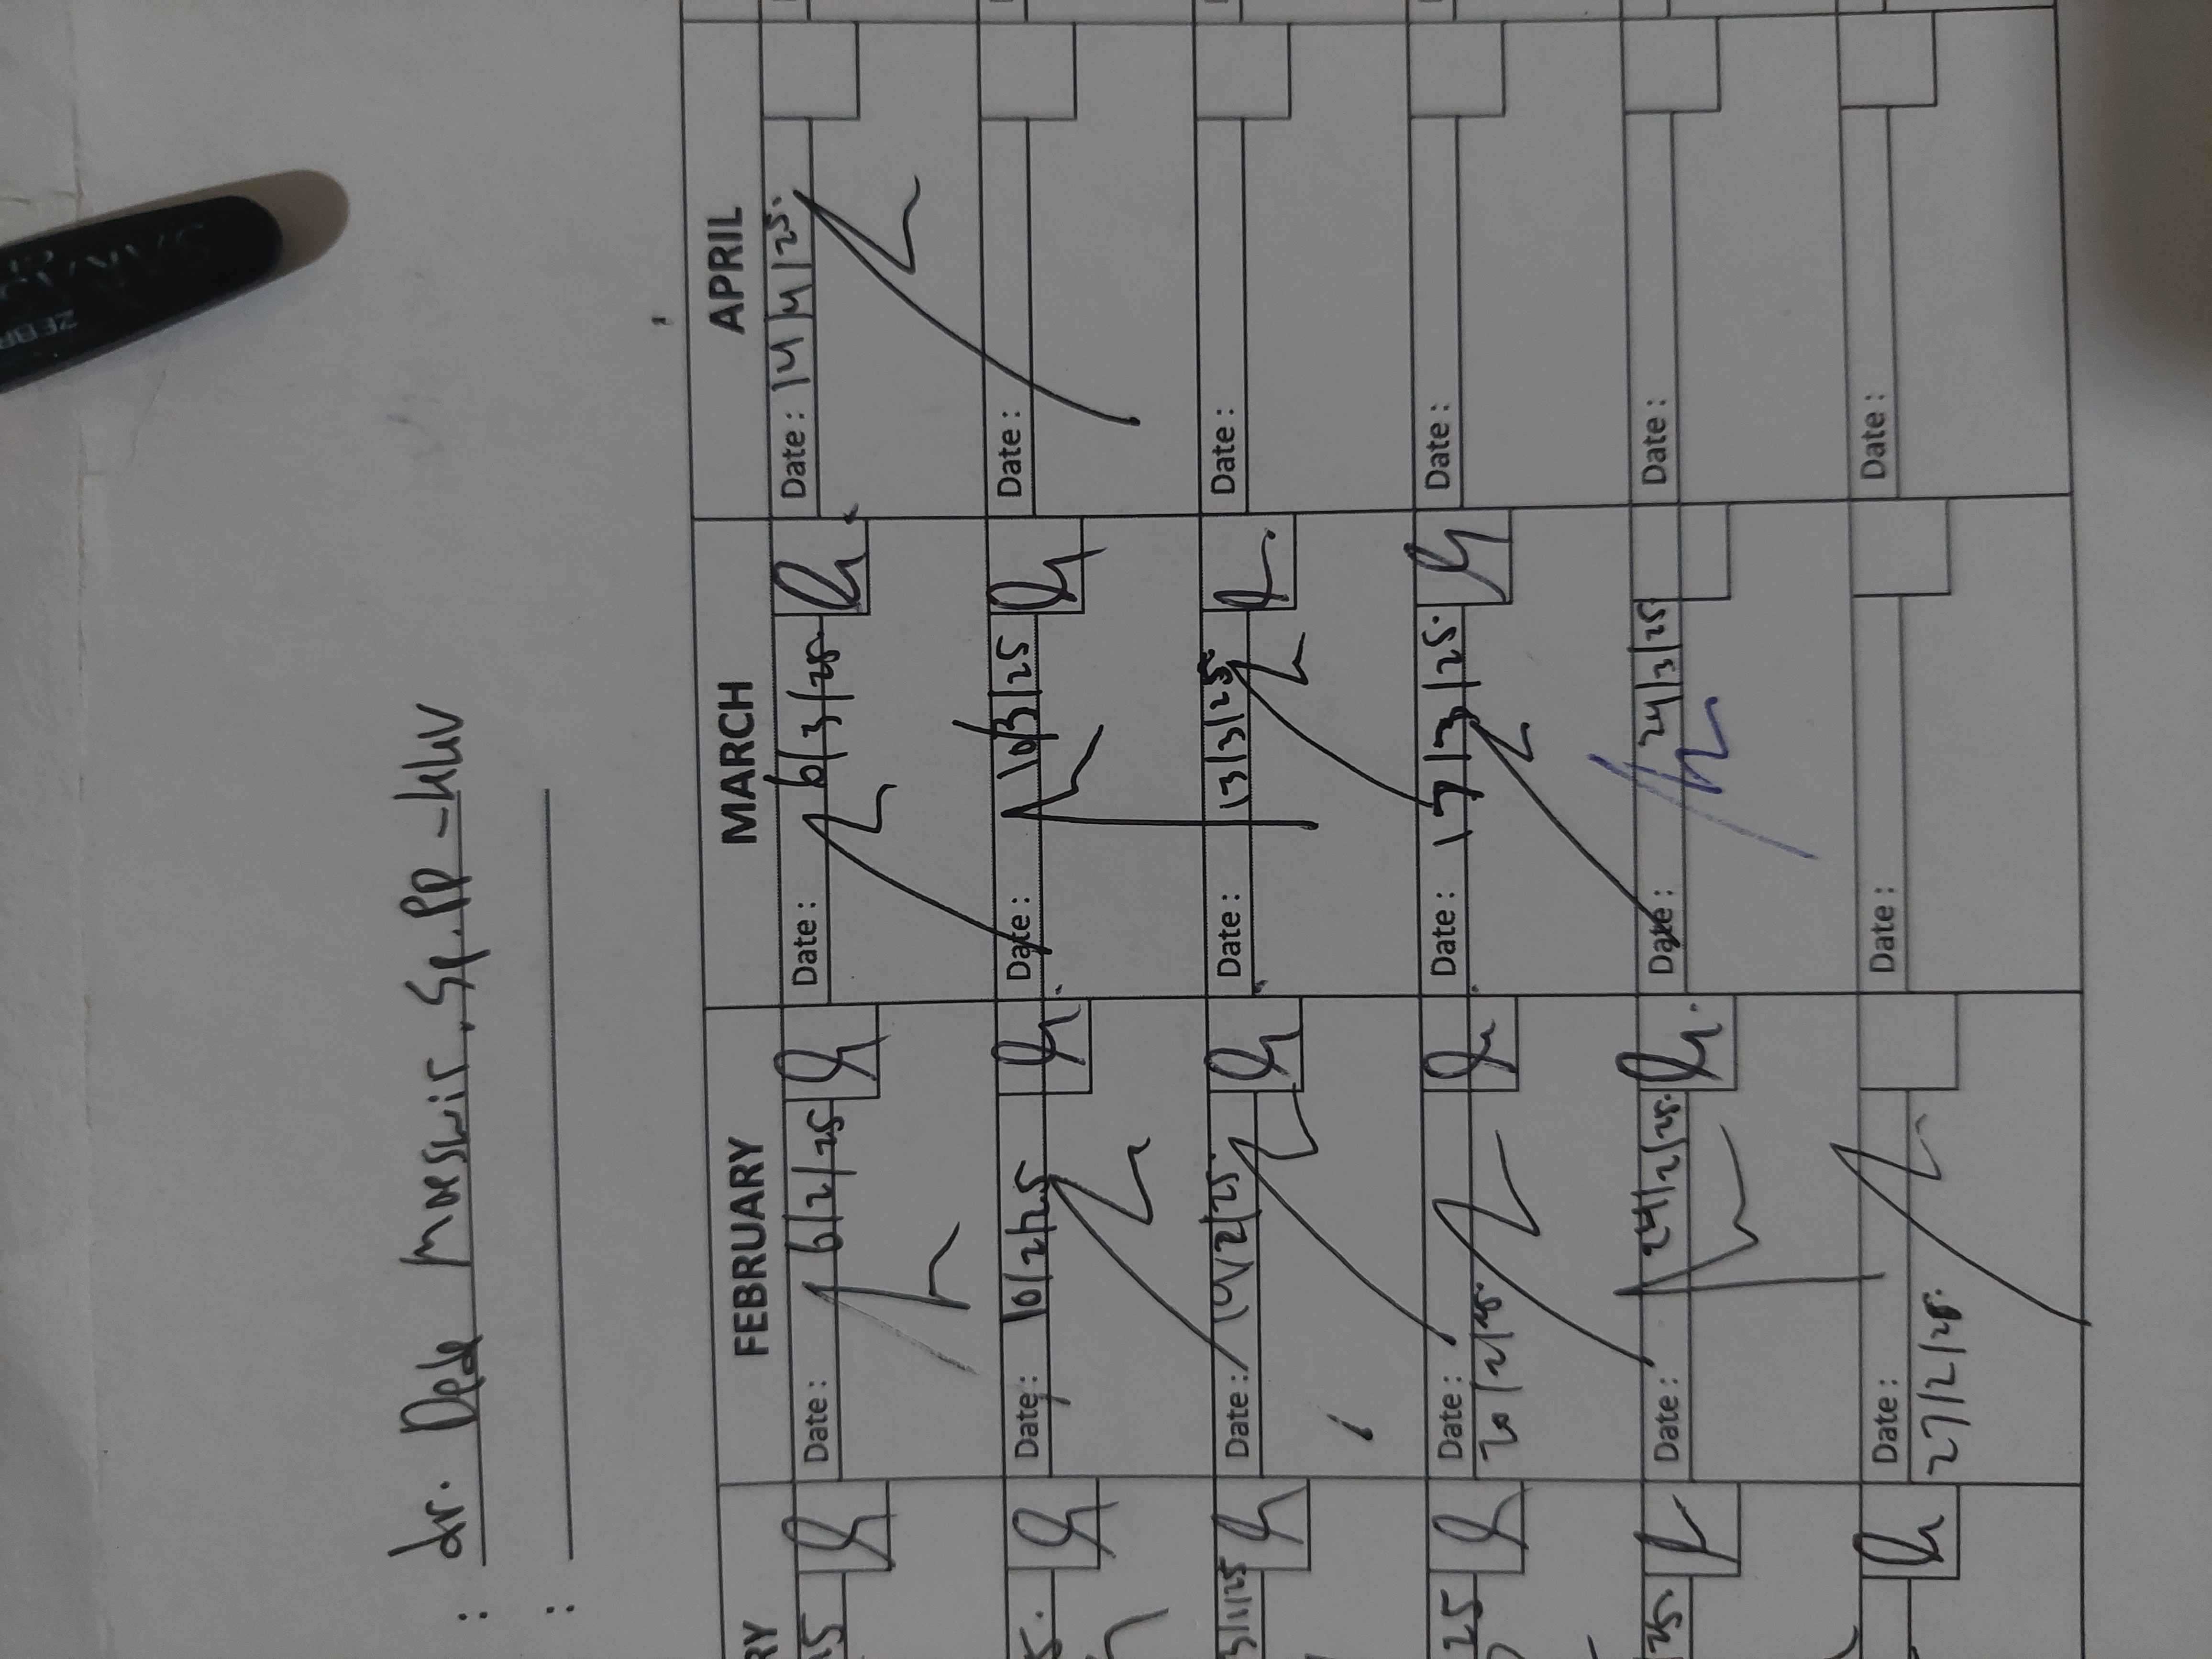 : dr. Dede Moeswir, Sp.PD-KKV
:
RY FEBRUARY MARCH APRIL
25 Date: 6/2/25 Date: 6/3/25 Date: 14/4/25.
5. Date: 10/2/25 Date: 10/3/25 Date:
3/1/25 Date: Date: 13/3/25. Date:
25 Date: Date: 17/3/25. Date:
20/2/25.
25. Date: 24/2/25. Date: 24/3/25 Date:
Date: Date: Date:
27/2/25.
ZEBR